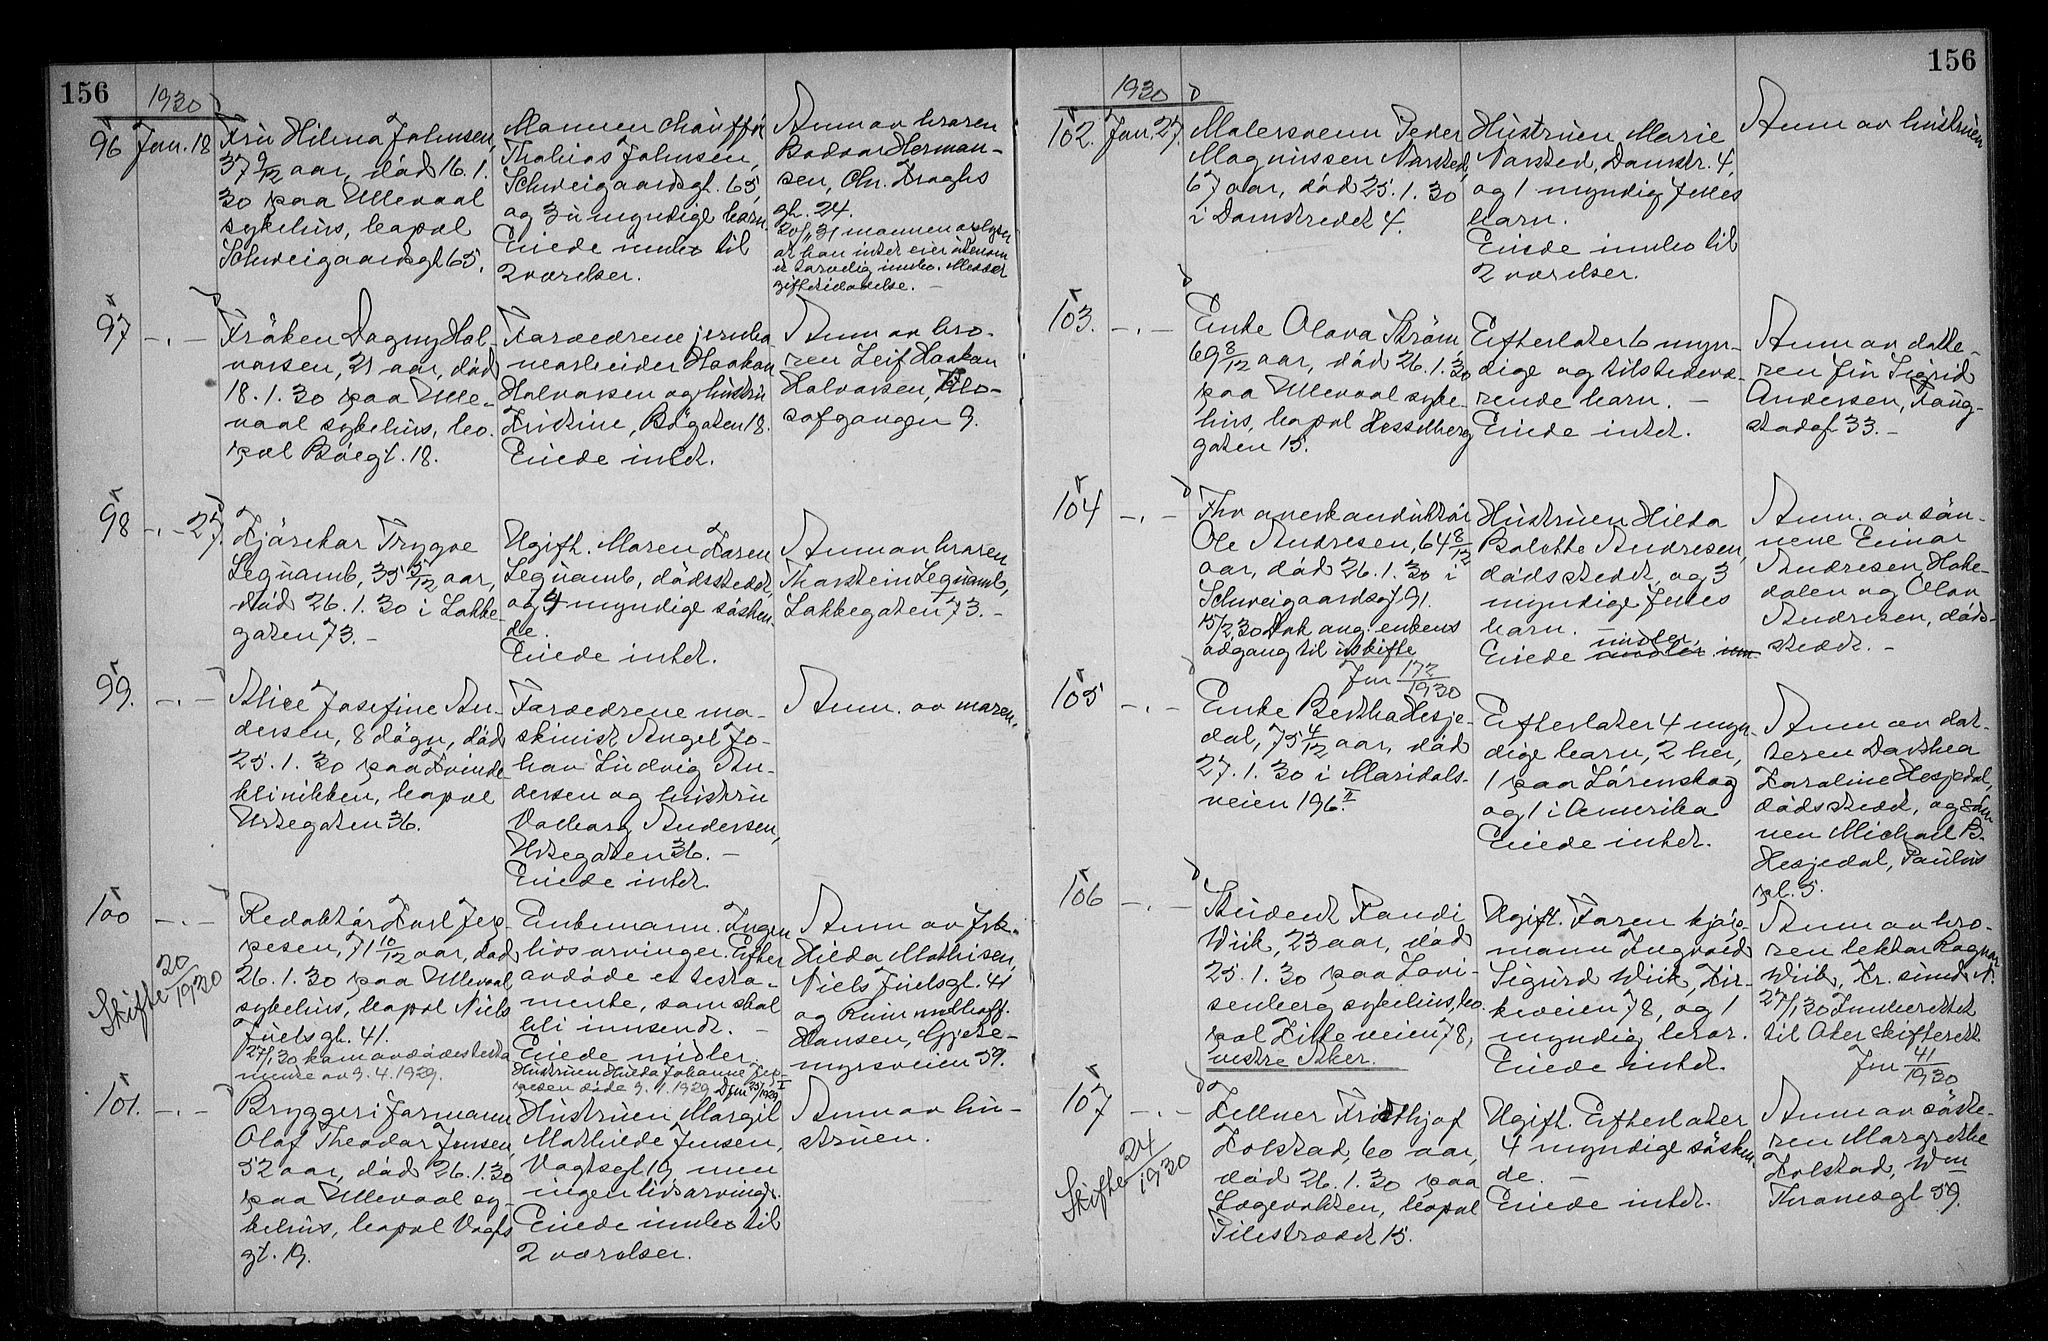 156
1930
96 Jan. 18
Fru Hilma Johnsen,
37 9/12 aar, död 16.1.
30 paa Ullevaal
sykehus, bopæl
Schweigaardsgt 65.
Manden chauffør
Thobias Johnsen,
Schweigaardsgt. 65,
og 3 umyndige barn.
Eiede innbo til
2 værelser.
Anm av broren
Bodvar Herman-
sen, Chr. Kroghs
gt. 24.
mannen oplyser
at han intet eier utenom
et tarvelig innbo.
97 -.-
Fröken Dagny Hal-
vorsen, 21 aar, död
18.1.30 paa Ulle-
vaal sykehus, bo-
pæl Böegt. 18.
Foreldrene jernba-
nearbeider Haakon
Halvorsen og hustru
Kristine, Bögaten 18.
Eiede intet.
Anm av bro-
ren Leif Haakon
Halvorsen, Filo-
sofgangen 9.
98 -.- 27.
Kjörekar Trygve
Legnamb, 35 5/12 aar,
död 26.1.30 i Lakke-
gaten 73. -
Ugift. Moren Karen
Legnamb, dödsstedet,
og 4 myndige sösken-
de.
Eiede intet.
Anm av broren
Thorstein Legnamb,
Lakkegaten 73. -
99. -.-
Alice Josefine An-
dersen, 8 dögn, död
25.1.30 paa Kvinde-
klinikken, bopæl
Urtegaten 36.
Foreldrene ma-
skinist Angel Jo-
han Ludvig An-
dersen og hustru
Valborg Andersen,
Urtegaten 36. -
Eiede intet.
Anm. av moren.
100 -.-
Skifte 20/1930
Redaktör Karl Jep-
pesen, 71 10/12 aar, död
26.1.30 paa Ullevaal
sykehus, bopæl Niels
Juelsgt. 41.
27/1 30 kom avdödes testa
mente av 9.4.1929.
Enkemann. Ingen
livsarvinger. Efter
avdöde et testa-
mente, som skal
bli innsendt. -
Eiede midler.
Hustruen Hulda Johanne Jep-
pesen döde 9.1.1929
Anm av Frk.
Hilda Mathisen,
Niels Juelsgt. 41
og
Hansen, Gjete-
myrsveien 59.
101. -.-
Bryggeriformann
Olaf Theodor Jensen,
52 aar, död 26.1.30
paa Ullevaal sy-
kehus, bopæl Vogts
gt. 19.
Hustruen Margit
Mathilde Jensen,
Vogtsgt 19 men
ingen livsarvinger.
Eiede innbo til
2 værelser.
Anm av hu-
struen.
156
1930
102. Jan. 27.
Malersvenn Peder
Magnussen Narsted,
67 aar, död 25.1.30
i Damstredet 4.
Hustruen Marie
Narsted, Damstr. 4,
og 1 myndig felles
barn.
Eiede innbo til
2 værelser.
Anm av hustruen
103. -.-
Enke Olava Ström,
69 8/12 aar, död 26.1.30
paa Ullevaal syke-
hus, bopæl Hesselberg
gaten 15.
Efterlater 6 myn-
dige og tilstedevæ-
rende barn. -
Eiede intet.
Anm av datte-
ren fru Sigrid
Andersen, Foug-
stadgt 33. -
104 -.-
Fhv overkonduktör
Ole Andresen, 64 8/12
aar, död 26.1.30 i
Schweigaardsgt 91.
15/2 30 Dok ang. enkens
adgang til uskifte
Jnr 172/1930
Hustruen Hilda
Bolette Andresen,
dödsstedet, og 3
myndige felles
barn. -
Eiede midler.
Anm. av sön-
nene Einar
Andresen, Hake-
dalen og Olav
Andresen, döds-
stedet. -
105 -.-
Enke Bertha Hesje-
dal, 75 4/12 aar, död
27.1.30 i Maridals-
veien 196 II.
Efterlater 4 myn-
dige barn, 2 her,
1 paa Lörenskog
og 1 i Amerika
Eiede intet.
Anm av dat-
teren Dorthea
Karoline Hesjedal,
dödsstedet, og søn-
nen Michael B.
Hesjedal, Paulus
pl. 5.
106 -.-
Student Randi
Wiik, 23 aar, död
25.1.30 paa Lovi-
senberg sykehus, bo-
pæl Kirkeveien 78,
vestre Aker.
Ugift. Faren kjöp-
mann Ingvald
Sigurd Wiik, Kir-
keveien 78, og 1
myndig bror.
Eiede intet.
Anm av bro-
ren lektor Ragnar
Wiik, Kr. sund N.
27/1 30 Innberettet
til Aker skifterett
Jnr 41/1930
107 -.-
Skifte 24/1930
Kellner Fridthjof
Kolstad, 60 aar,
död 26.1.30 paa
Lægevakten, bopæl
Pilestredet 15.
Ugift. Efterlater
4 myndige sösken-
de. -
Eiede intet.
Anm av söste-
ren Margrethe
Kolstad, Wm
Thranesgt 59.